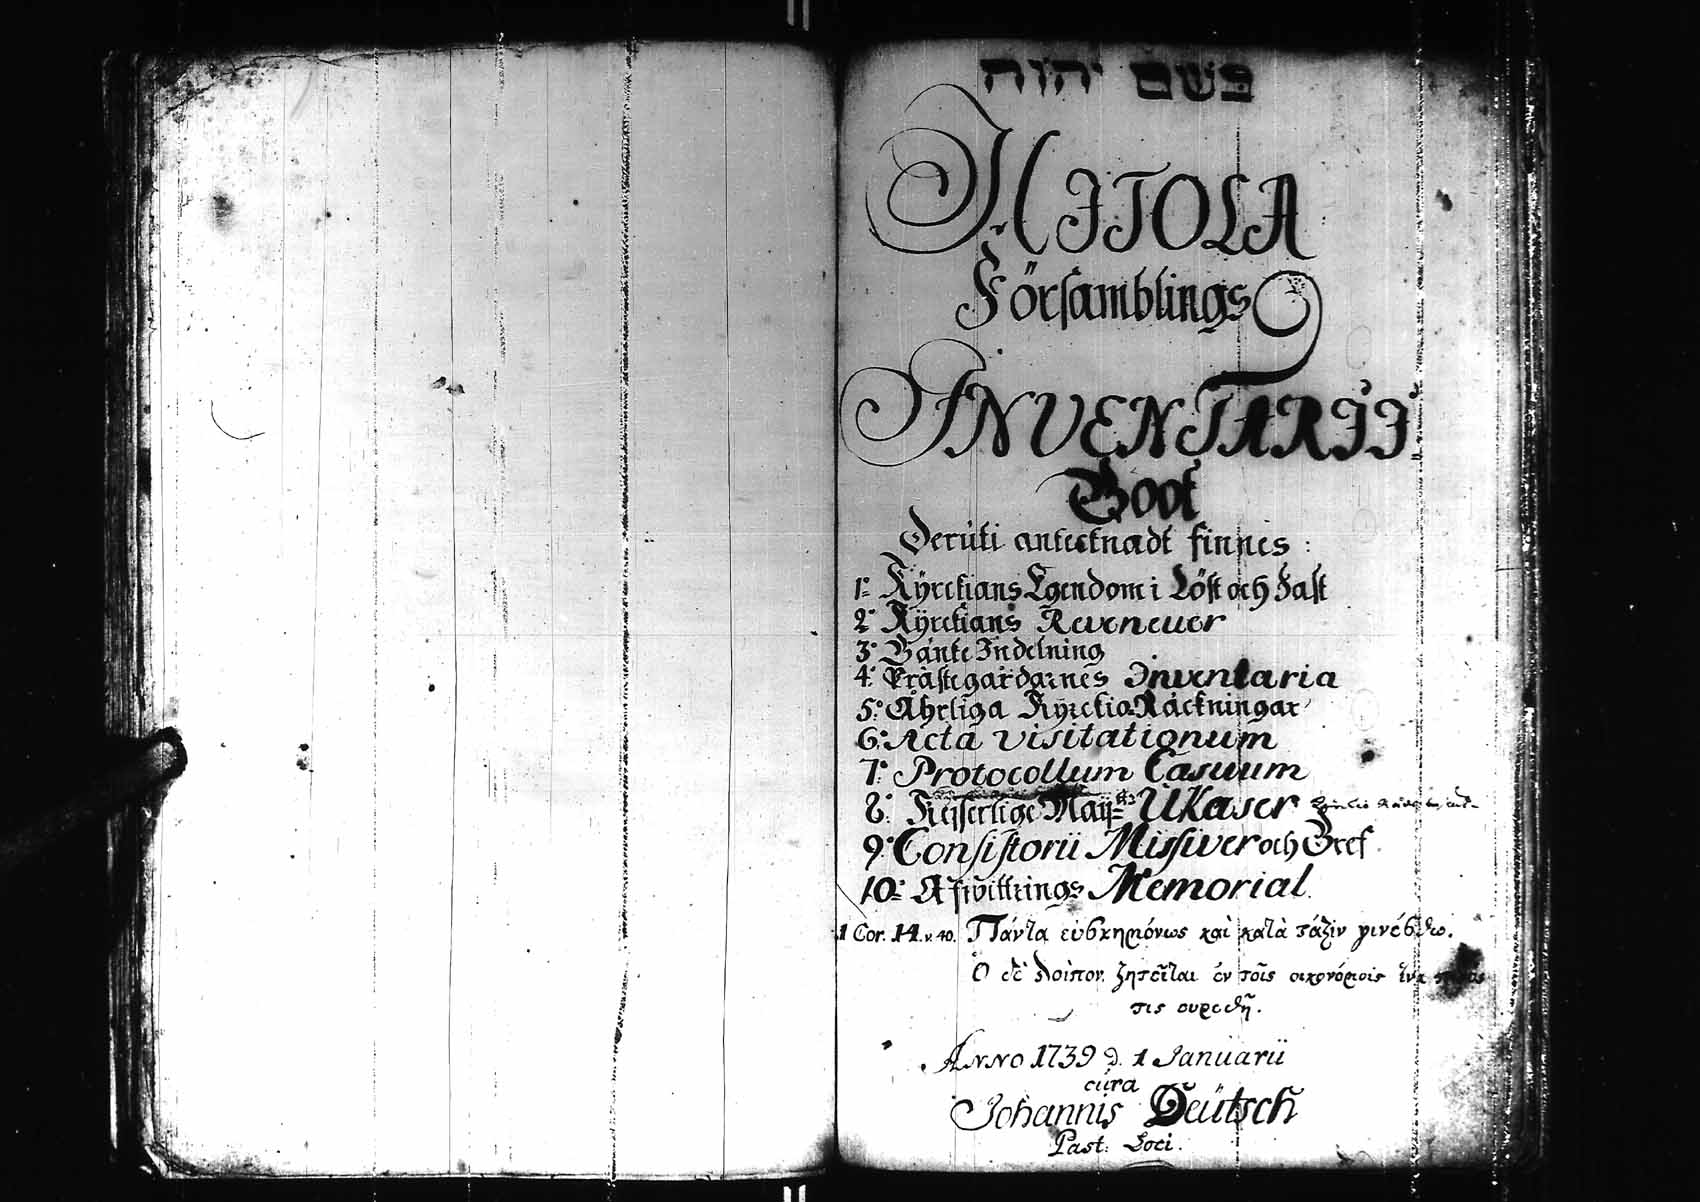 בשם יהוה
HJTOLA
Församblings
INVENTARII
Book
Deruti antecknadt finnes :
1º Kyrckians Egendom i Löst och Fast
2º Kyrckians Revenuer
3º Bänke Indelning
4º Prästegårdarnes Inventaria
5º Åhrliga Kyrckio Räckningar
6º Acta visitationum
7º Protocollum Casuum
8º Keijserlige Maijtts UKaser
9º Consistorii Missiver och Bref
10º Afwittrings Memorial.
1 Cor. 14. v. 40. Πάντα εὐσχημόνως καὶ κατὰ τάξιν γινέσθω.
Ὁ δὲ λοίπον ζητεῖται ἐν τοῖς οικονόμοις ἵνα
τις ουρεθῆ.
ANNO 1739 d. 1 Januarii
cura
Johannis Deütsch
Past: Loci.